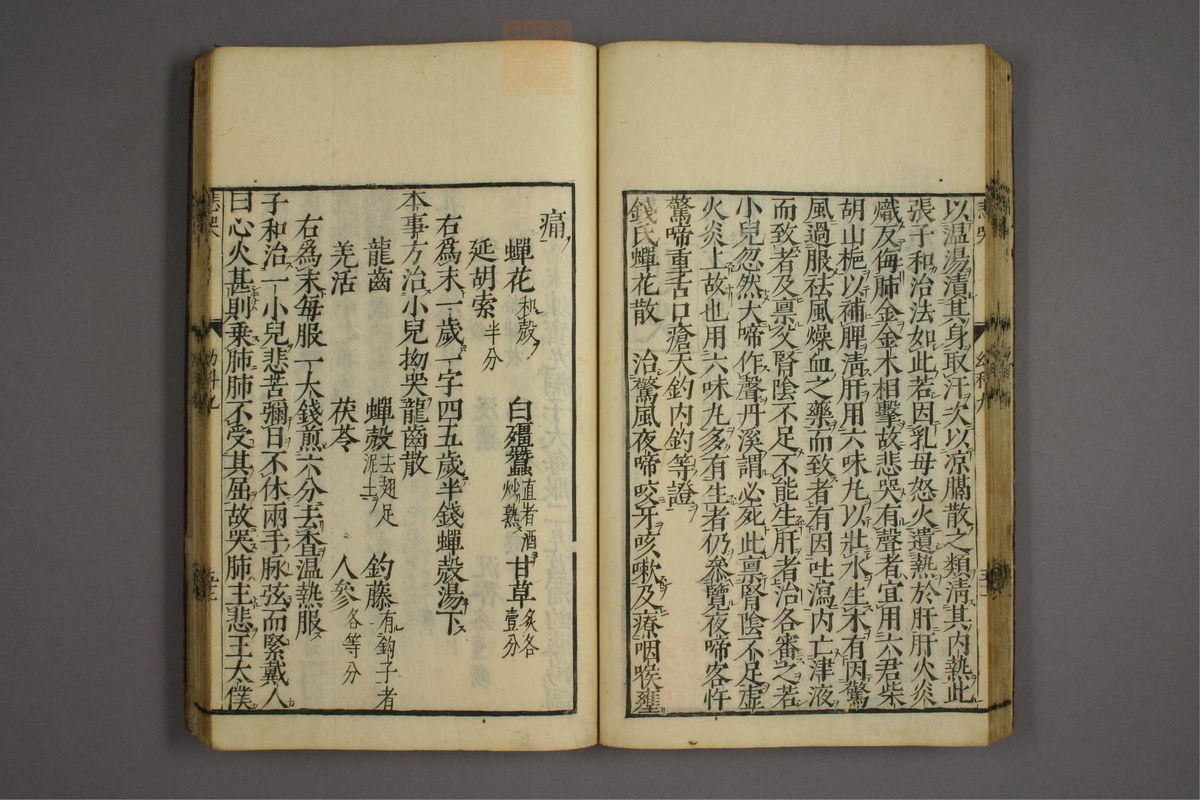 以温湯漬其身取汗次以凉膈散之類清其内熱此
張子和治法如此若因乳母怒火遺熱於肝肝火炎
熾反侮肺金金木相擊故悲哭有聲者宜用六君柴
胡山梔以補脾清肝用六味丸以壯水生木有因驚
風過服祛風燥血之藥而致者有因吐瀉内亡津液
而致者及禀父腎陰不足不能生肝者治各審之若
小兒忽然大啼作聲丹溪謂必死此禀腎陰不足虚
火炎上故也用六味丸多有生者仍參覽夜啼客忤
驚啼重舌口瘡天釣内釣等證
錢氏蟬花散 治驚風夜啼咬牙咳嗽及療咽喉壅
痛
蟬花和殼 白殭蠶直者酒炒熟 甘草炙各壹分
延胡索半分
右爲末一歲一字四五歲半錢蟬殼湯下
本事方治小兒拗哭龍齒散
龍齒 蟬殼去翅足泥土 釣藤有鈎子者
羌活 茯苓 人參各等分
右爲末每服一大錢煎六分去柤温熱服
子和治一小兒悲苦彌日不休兩手脉弦而緊戴人
曰心火甚則乗肺肺不受其屈故哭肺主悲王太僕
悲哭 幼科九